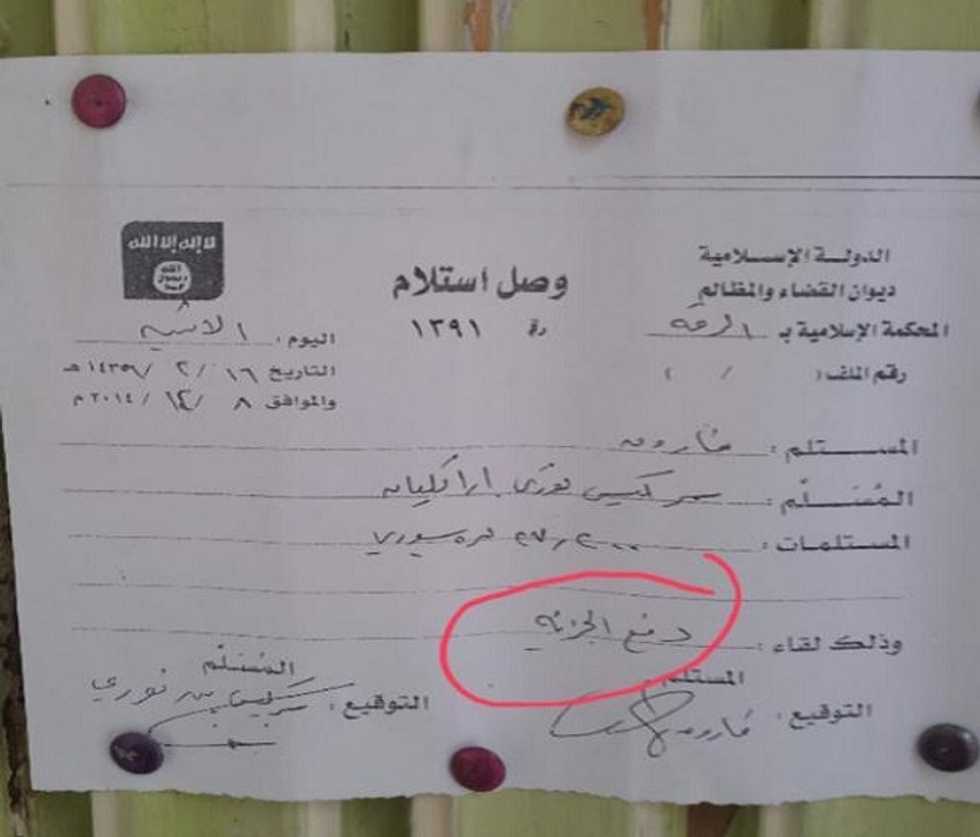 لا إله إلا الله
الله
رسول
محمد
الدولـة الإسـلامية
ديوان القضاء والمظالم
المحكمة الإسلامية بـ الرقه
رقم الملف: / /
وصل استلام
رقم ١٣٩١
اليوم: الاثنين
التاريخ ١٦ / ٢ / ١٤٣٦ هـ
والموافق ٨ / ١٢ / ٢٠١٤ م
المسـتلم: فاروق
المُسَـلّم: سركيس نوري اراكليان
المستلمات: ٢٧,٢٠٠ ليره سوري
وذلك لقاء: دفع الجزيه
المستلم
التوقيع: فاروق
المُسَلّم
التوقيع: سركيس نوري